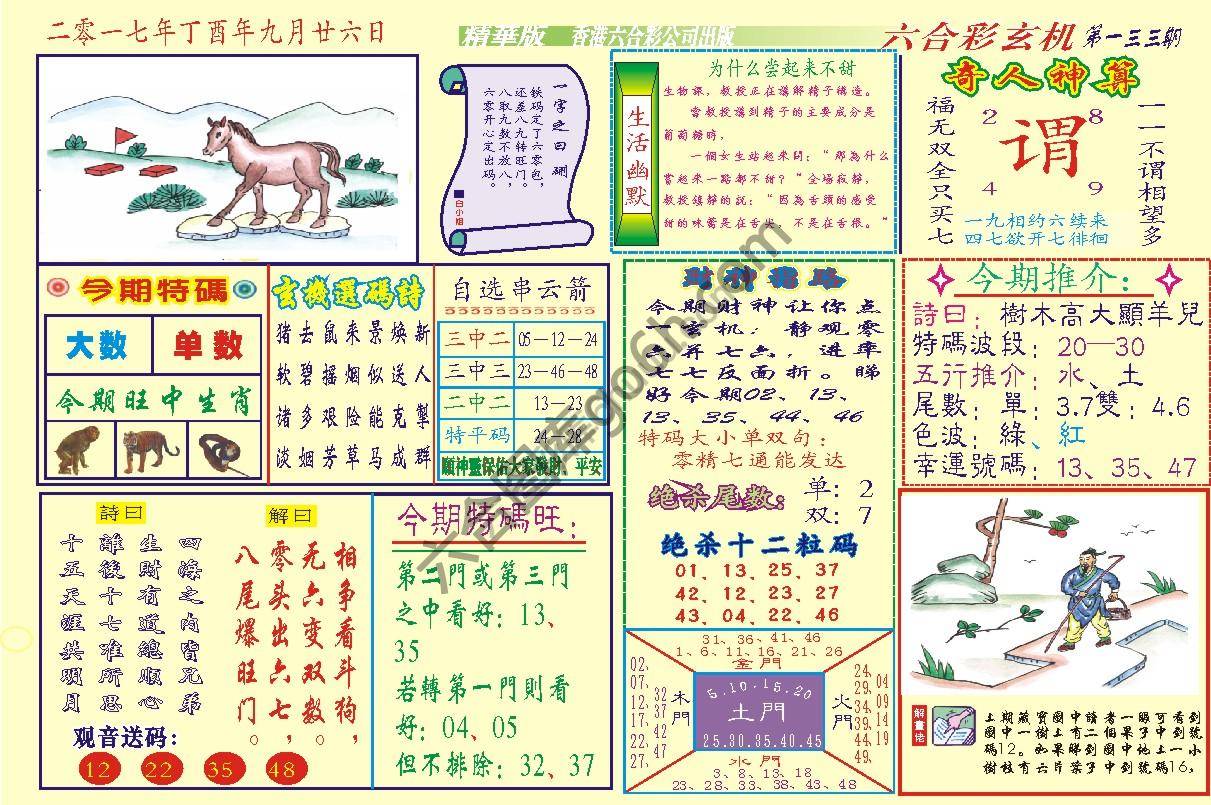 二零一七年丁酉年九月廿六日
精華版 香港六合彩公司出版
六合彩玄机 第一三三期
一字之曰 硼
铁码定了六零包，
还差八九转旺门。
八取九数不放八，
六零开心定出码。
白小姐
生活幽默
为什么尝起来不甜
生物課，教授正在講解精子構造。
當教授講到精子的主要成分是
葡萄糖時，
一個女生站起来問：“那為什么
嘗起来一路都不甜？“全場寂靜，
教授鎮靜的説：“因為舌頭的感受
甜的味蕾是在舌尖，不是在舌根。“
奇人神算
福无双全只买七
2 8
谓
4 9
一一不谓相望多
一九相约六续来
四七欲开七徘徊
今期特碼
大数 单数
今期旺中生肖
玄機選碼詩
猪去鼠来景焕新
软碧摇烟似送人
诸多艰险能克掣
淡姻芳草马成群
自选串云箭
三中二 05—12—24
三中三 23—46—48
二中二 13—23
特平码 24—28
願神靈保佑大家發財、平安
財神指路
今期财神让你点
一玄机，静观零
六并七六，进库
七七反面折。睇
好今期02、13、
13、35、44、46
特码大小单双句：
零精七通能发达
绝杀尾数： 单：2
双：7
绝杀十二粒码
01、13、25、37
42、12、23、27
43、04、22、46
今期推介：
詩曰：樹木高大顯羊兒
特碼波段：20—30
五行推介：水、土
尾數：單：3.7雙：4.6
色波：綠、紅
幸運號碼：13、35、47
詩曰
四海之内皆兄弟
生財有道總順心
離後十七难所思
十五天涯共明月
解曰
相争看斗狗，
无六变双数。
零头出六七，
八尾爆旺门。
观音送码：
12 22 35 48
今期特碼旺：
第二門或第三門
之中看好：13、
35
若轉第一門則看
好：04、05
但不排除：32、37
31、36、41、46
1、6、11、16、21、26
金門
02、07、12、17、22、27、
32、37、42、47
木門
5.10.15.20
土門
25.30.35.40.45
火門
24、29、34、39、44、49、
04、09、14、19
水門
3、8、13、18
23、28、33、38、43、48
解畫佬
上期藏寶圖中讀者一眼可看到
圖中一樹上有二個果子中到號
碼12。如果睇到圖中地上一小
樹枝有六片葉子中到號碼16，
六合图库go06h.com